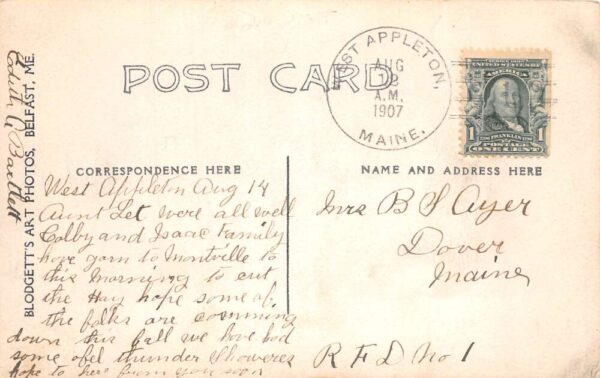 POST CARD
WEST APPLETON,
AUG
A.M.
1907
MAINE.
SERIES 1902
1
FRANKLIN
POSTAGE
ONE CENT
BLODGETT'S ART PHOTOS, BELFAST, ME.
Edith A Bartlett
CORRESPONDENCE HERE
West Appleton Aug 18
Aunt Let were all well
Colby and Isaac Family
have garn to Montville to
this morning to cut
the Hay hope some of
the folks are comming
down this fall we have had
some ofel thunder Showeres
hope to here from you soon
NAME AND ADDRESS HERE
Mrs B S Ayer
Dover
Maine
R F D No 1